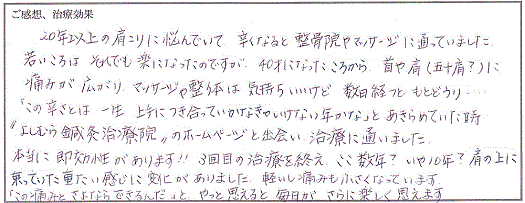 ご感想、治療効果
20年以上の肩こりに悩んでいて、辛くなると整骨院やマッサージに通っていました。
若いころはそれでも楽になったのですが、40才になったころから、首や肩(五十肩?)に
痛みが広がり、マッサージや整体は気持ちいいけど数日経つともとどうり・・・・
「この辛さとは一生上手につき合っていかなきゃいけない年かな」とあきらめていた時
"よしむら鍼灸治療院"のホームページと出会い、治療に通いました。
本当に即効性があります!! 3回目の治療を終え、ここ数年?いや10年?肩の上に
乗っていた重たい感じに変化がありました。軽いし痛みも小さくなっています。
「この痛みとさよならできるんだ」と、やっと思えると毎日がさらに楽しく思えます